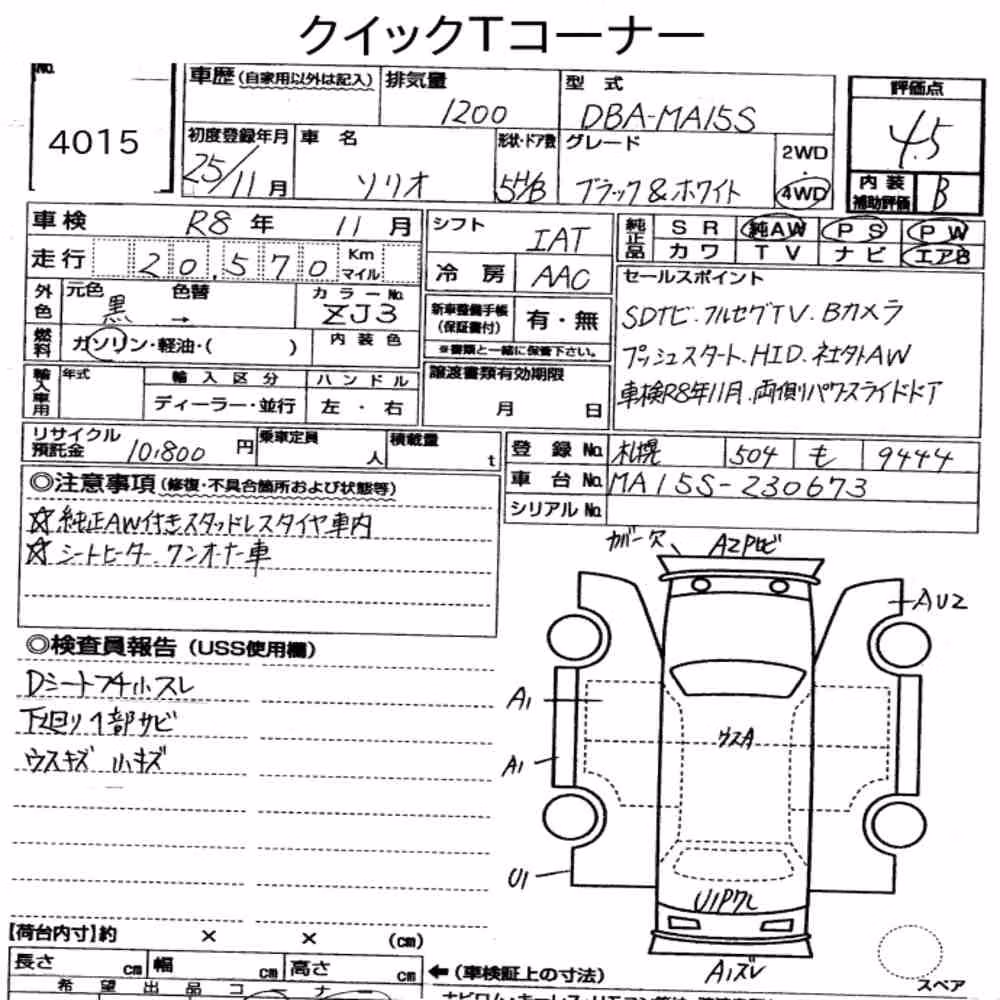 クイックTコーナー
No.
4015
車歴(自家用以外は記入)
排気量
1200
型式
DBA-MA15S
評価点
4.5
初度登録年月
25/11月
車名
ソリオ
形状・ドア数
5H/B
グレード
ブラック&ホワイト
2WD
・
4WD
内装
補助評価
B
車検 R8年 11月
走行 20,570 Km マイル
外色 元色 黒 色替 → カラーNo. ZJ3
燃料 ガソリン・軽油・( ) 内装色
シフト IAT
冷房 AAC
新車整備手帳
(保証書付)
有・無
※書類と一緒に保管下さい。
純正品 SR 純AW PS PW
カワ TV ナビ エアB
セールスポイント
SDナビ.フルセグTV.Bカメラ
プッシュスタート.HID.社外AW
車検R8年11月.両側パワースライドドア
輸入車用 年式 輸入区分 ハンドル
ディーラー・並行 左・右
譲渡書類有効期限
月 日
リサイクル
預託金 10,800円
乗車定員 人
積載量 t
登録No. 札幌 504 も 9444
車台No. MA15S-230673
シリアルNo.
◎注意事項(修復・不具合箇所および状態等)
☆純正AW付きスタッドレスタイヤ車内
☆シートヒーター.ワンオーナー車
◎検査員報告(USS使用欄)
Dシートフチ小スレ
下廻り1部サビ
ウスキズ 小キズ
カバー欠
A2Pトビ
AU2
A1
ウスA
A1
U1
U1Pワレ
A1ズレ
スペア
【荷台内寸】約 × × (cm)
長さ cm 幅 cm 高さ cm
←(車検証上の寸法)
希望出品コーナー